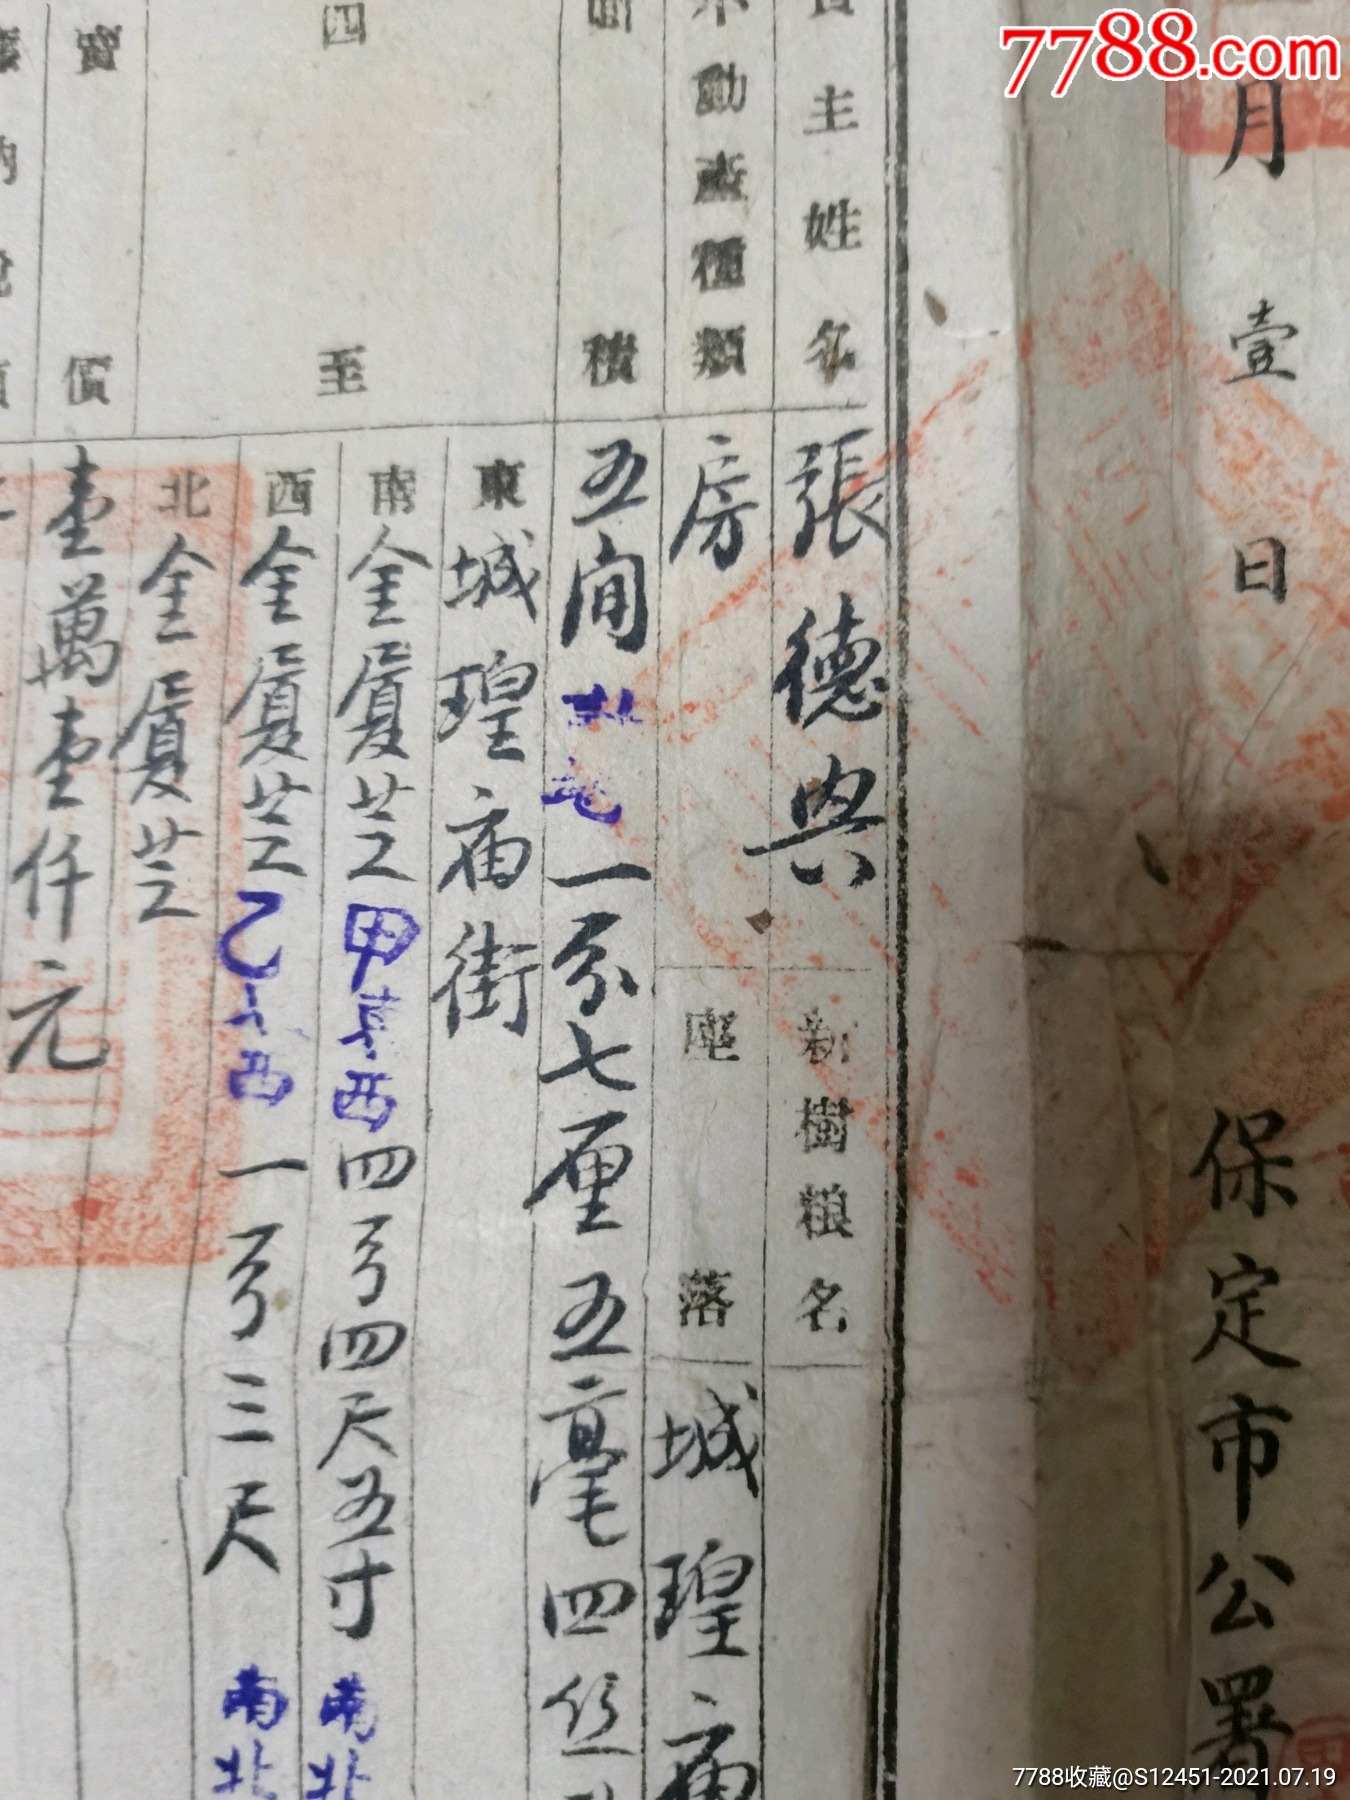 7788.com
月壹日
保定市公署
主姓名 張德興 新樹粮名
動產種類 房 座落 城瑝庙
積 五间 地 一分七厘五毫四丝
四至
東 城瑝庙街
南 金履芝 甲東西四弓四尺五寸南北
西 金履芝 乙東西一弓三尺南北
北 金履芝
賣價 壹萬壹仟元
納稅
7788收藏@S12451-2021.07.19